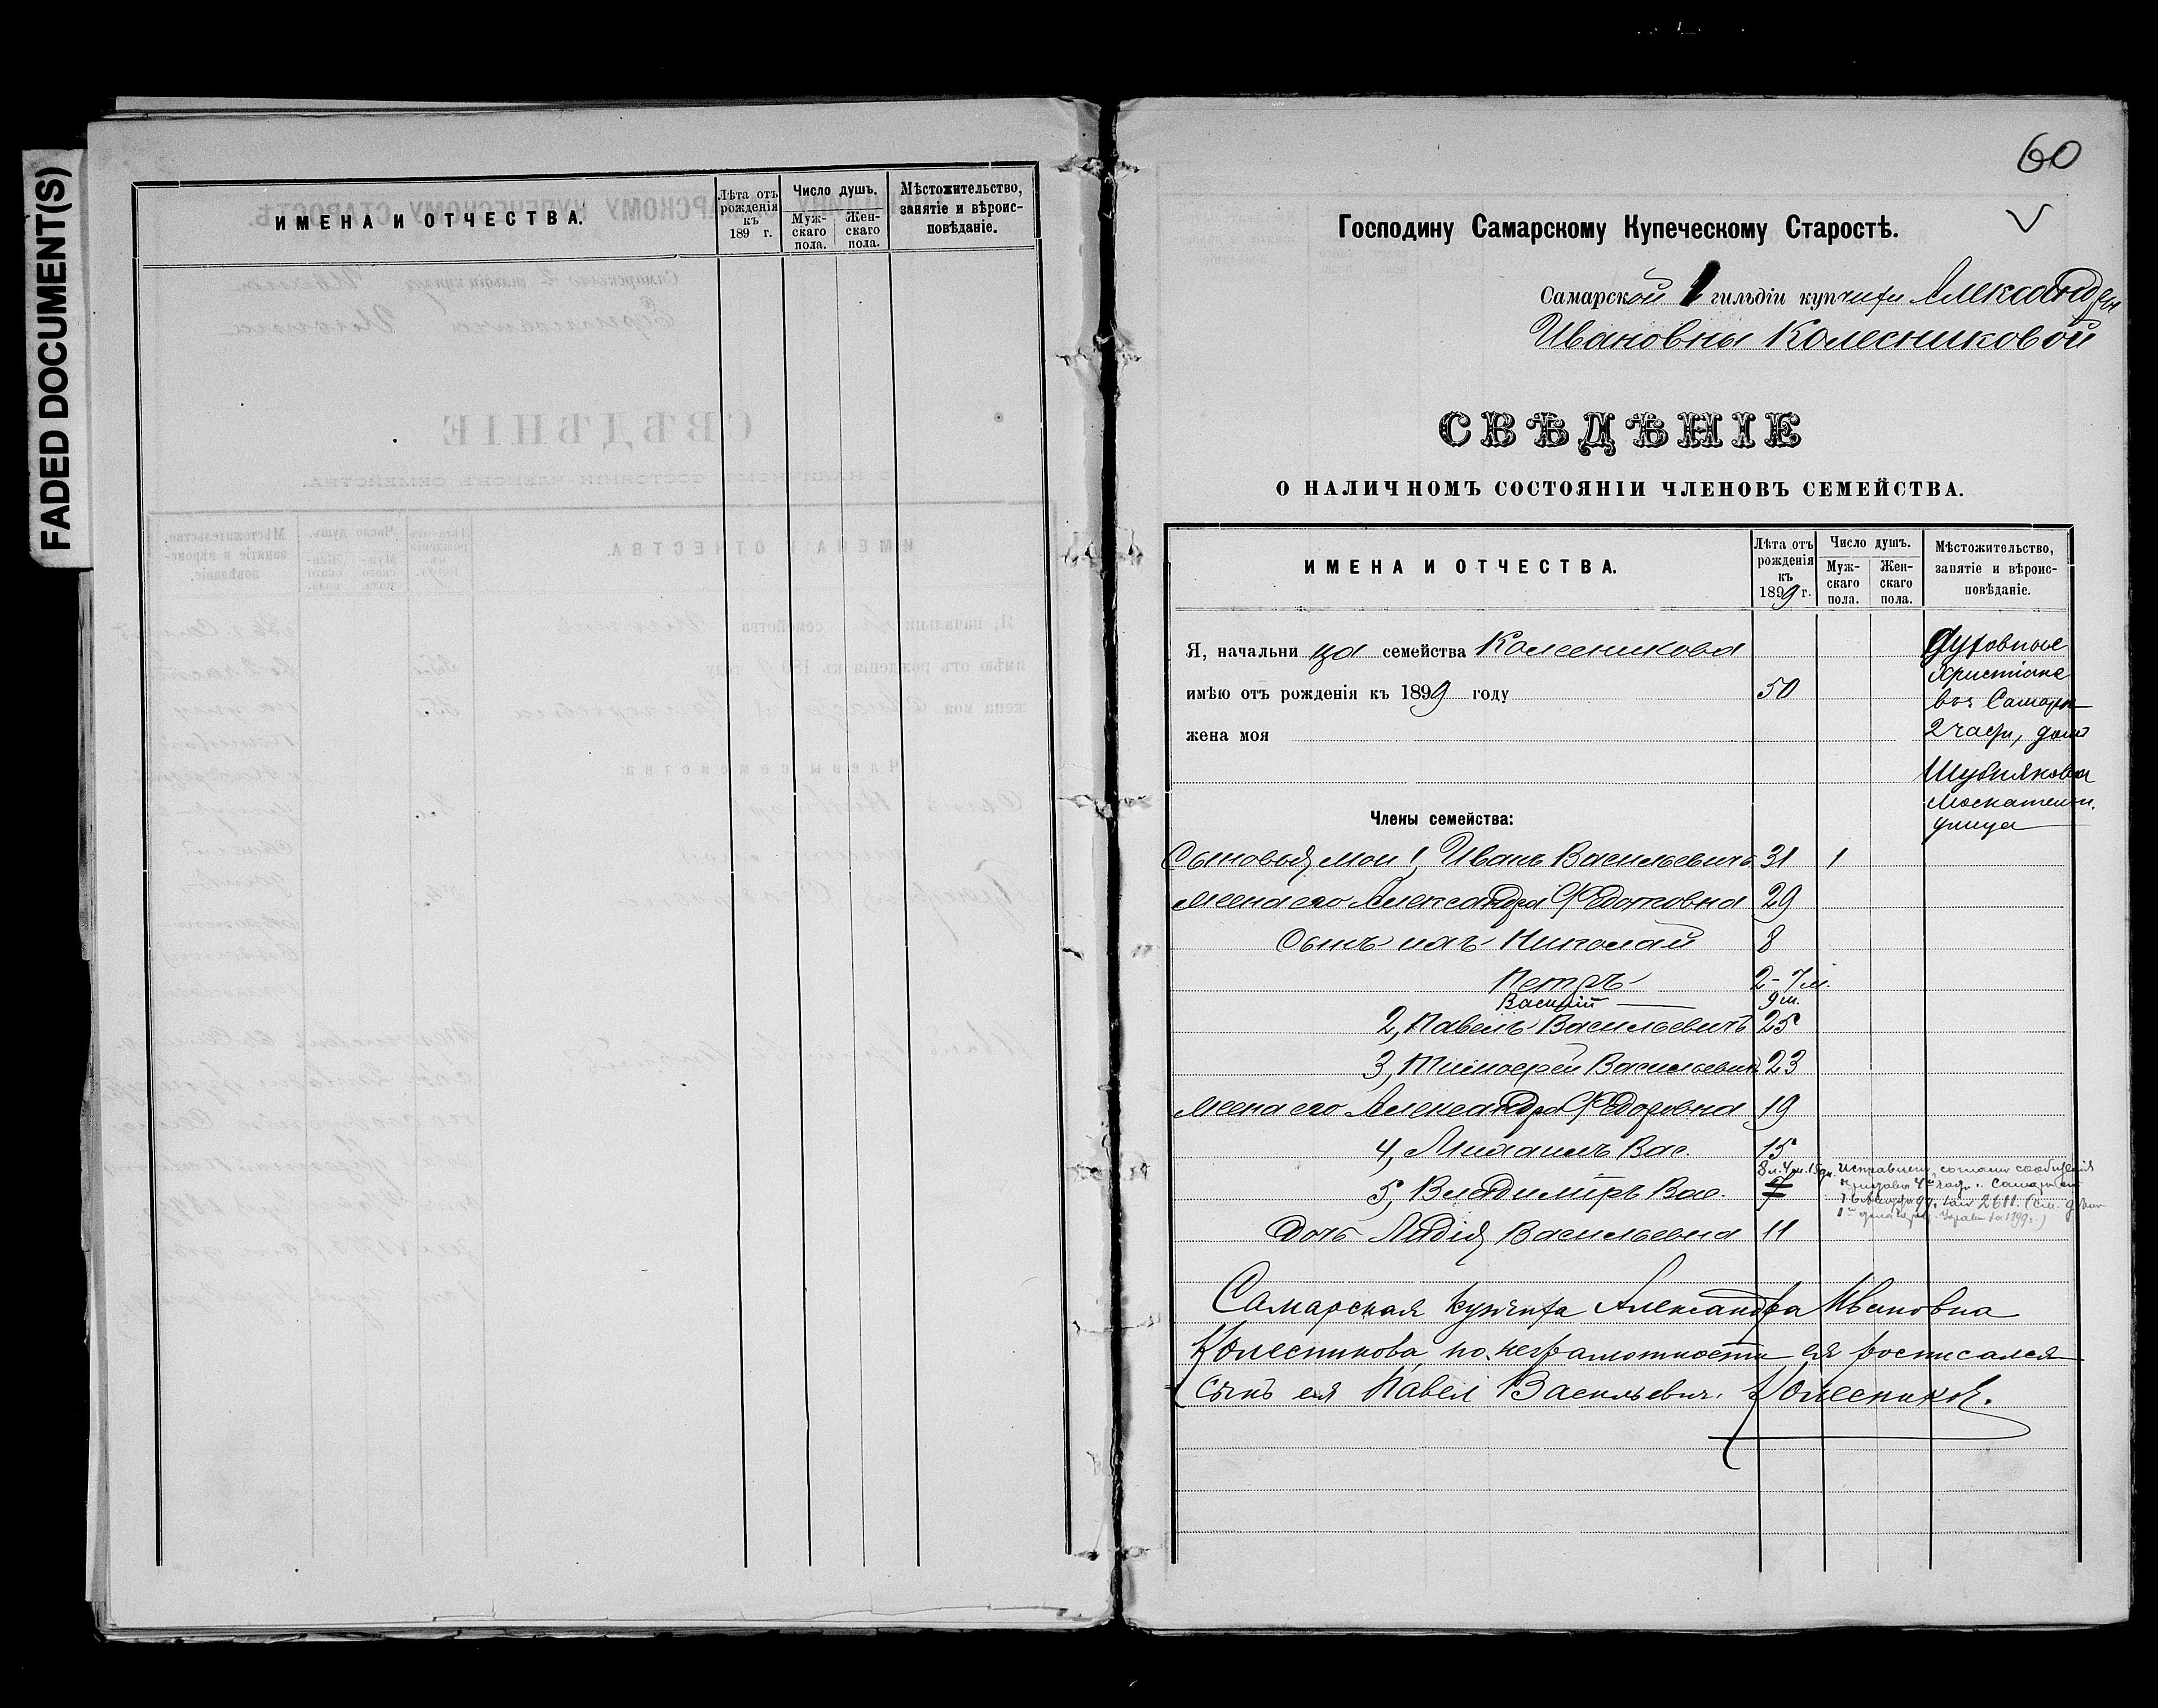 FADED DOCUMENT(S)
ИМЕНА И ОТЧЕСТВА.
Лѣта отъ рожденія къ 189 г.
Число душъ.
Муж-скаго пола.
Жен-скаго пола.
Мѣстожительство, занятіе и вѣроис-повѣданіе.
60
Господину Самарскому Купеческому Старостѣ.
Самарской 1 гильдіи купчихи Александры
Ивановны Колесниковой
СВѢДѢНІЕ
О НАЛИЧНОМЪ СОСТОЯНІИ ЧЛЕНОВЪ СЕМЕЙСТВА.
ИМЕНА И ОТЧЕСТВА.
Лѣта отъ рожденія къ 1899 г.
Число душъ.
Муж-скаго пола.
Жен-скаго пола.
Мѣстожительство, занятіе и вѣроис-повѣданіе.
Я, начальница семейства Колесникова
имѣю отъ рожденія къ 1899 году 50
жена моя
Духовные
христіане
въ Самарѣ
2 части, домъ
Москательн.
улица
Члены семейства:
Сыновья мои 1, Иванъ Васильевичъ 31 1
жена его Александра 29
Сынъ ихъ Николай 8
Петръ 2-7м.
Василій 9 м.
2, Павелъ Васильевичъ 25
3, Тимофей Васильевичъ 23
жена его Александра Федоровна 19
4, Михаилъ Вас. 15
8 л. 4 м. 15 дн. Исправлено согласно сообщенія
5, Владиміръ Вас. 7
Дочь Лидія Васильевна 11
Самарская купчиха Александра Ивановна
Колесникова по неграмотности ея росписался
сынъ ея Павел Васильевич. Колесников.